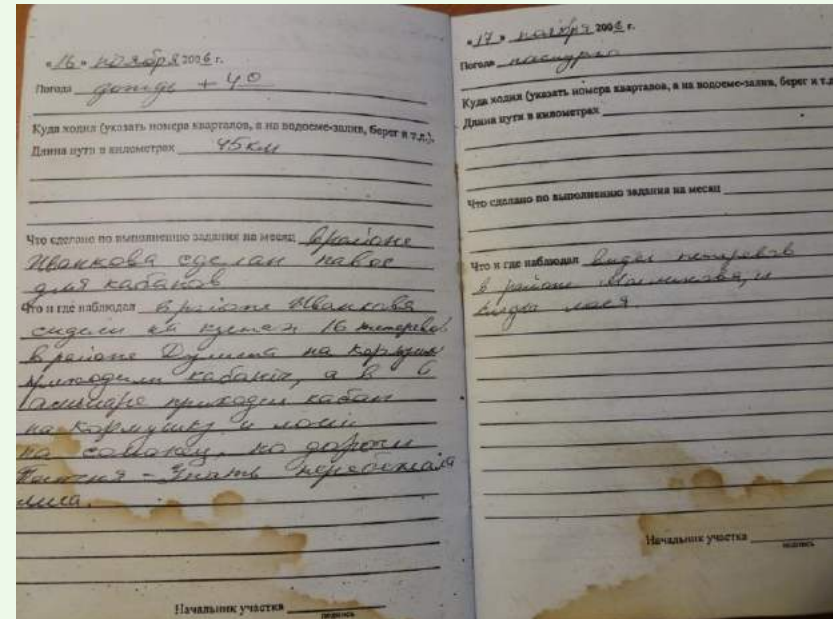 «16» ноября 2006 г.
Погода дождь + 4°
Куда ходил (указать номера кварталов, а на водоеме-залив, берег и т.д.).
Длина пути в километрах 45 км
Что сделано по выполнению задания на месяц в районе
Иванкова сделан навес
для кабанов
Что и где наблюдал в районе Иванкова
сидели на 16 тетеревов
в районе на кормушку
приходили кабаны, а в
приходил кабан
на кормушку и лоси
на солонец, по дороги
- Знать перебежала
лиса.
Начальник участка
подпись
«17» ноября 2006 г.
Погода пасмурно
Куда ходил (указать номера кварталов, а на водоеме-залив, берег и т.д.
Длина пути в километрах
Что сделано по выполнению задания на месяц
Что и где наблюдал видел тетеревов
в районе и
видел лося.
Начальник участка
подпись